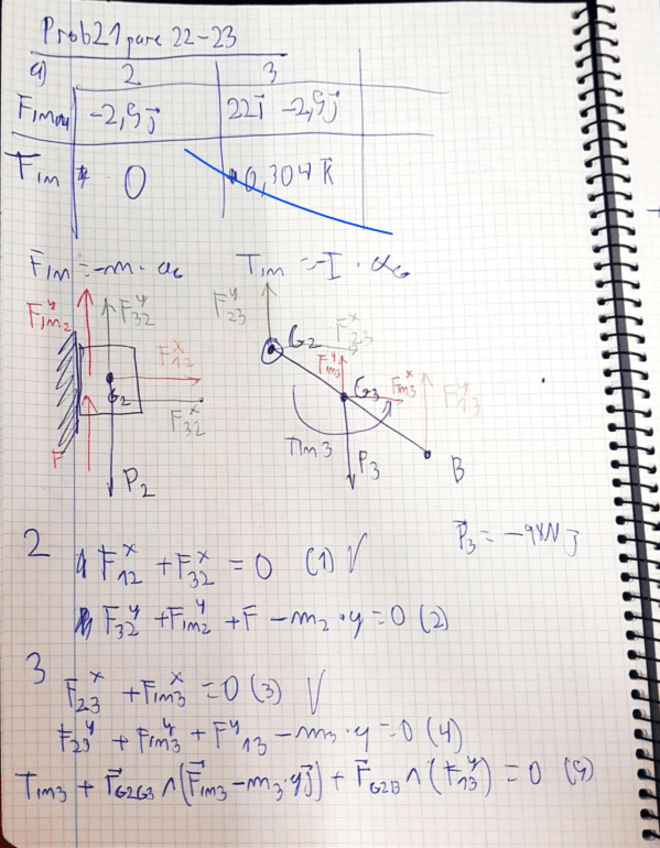 Prob21 parc 22-23
a) 2 3
-2,9j 22i -2,9j
FIM 0 0,304 K
FIM = -m · aG TIM = -I · αG
FyIM2 Fy32 Fx12 G2 Fx32 F P2
Fy23 G2 Fx23 FyIM3 G3 FxIM3 Fy13 TIM3 P3 B
P3 = -98N j
2 Fx12 + Fx32 = 0 (1) V
Fy32 + FyIM2 + F - m2 · g = 0 (2)
3 Fx23 + FxIM3 = 0 (3) V
Fy23 + FyIM3 + Fy13 - m3 · g = 0 (4)
TIM3 + rG2G3 ∧ (FIM3 - m3·gj) + rG2B ∧ (Fy13) = 0 (5)